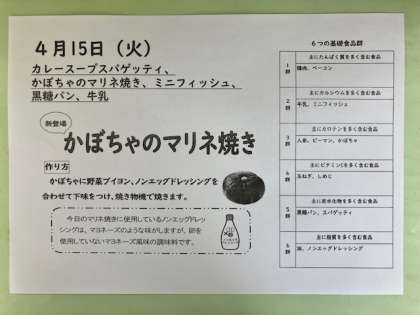 4月15日（火）
カレースープスパゲッティ、
かぼちゃのマリネ焼き、ミニフィッシュ、
黒糖パン、牛乳
新登場
かぼちゃのマリネ焼き
作り方
かぼちゃに野菜ブイヨン、ノンエッグドレッシングを
合わせて下味をつけ、焼き物機で焼きます。
今日のマリネ焼きに使用しているノンエッグドレッ
シングは、マヨネーズのような味がしますが、卵を
使用していないマヨネーズ風味の調味料です。
6つの基礎食品群
主にたんぱく質を多く含む食品
1群
鶏肉、ベーコン
主にカルシウムを多く含む食品
2群
牛乳、ミニフィッシュ
主にカロテンを多く含む食品
3群
人参、ピーマン、かぼちゃ
主にビタミンCを多く含む食品
4群
玉ねぎ、しめじ
主に炭水化物を多く含む食品
5群
黒糖パン、スパゲッティ
主に脂質を多く含む食品
6群
油、ノンエッグドレッシング